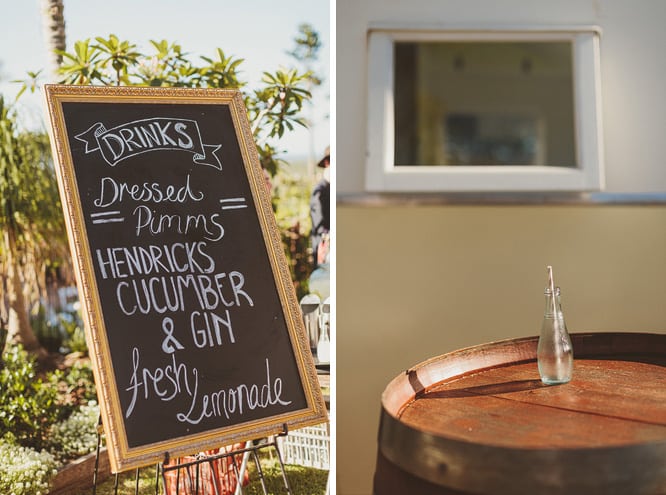 DRINKS
Dressed
Pimms
HENDRICKS
CUCUMBER
& GIN
fresh
Lemonade